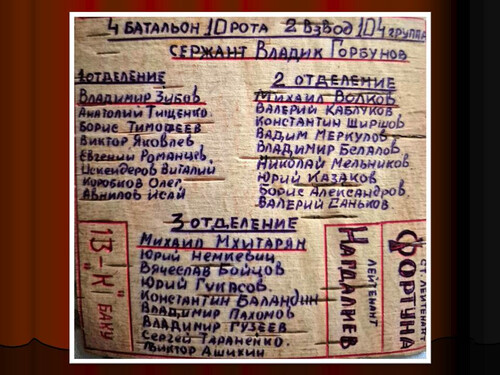 4 БАТАЛЬОН 10 РОТА 2 ВЗВОД 104 ГРУППА
СЕРЖАНТ ВЛАДИК ГОРБУНОВ
1 ОТДЕЛЕНИЕ
ВЛАДИМИР ЗУБОВ
АНАТОЛИЙ ТИЩЕНКО
БОРИС ТИМОФЕЕВ
ВИКТОР ЯКОВЛЕВ
ЕВГЕНИЙ РОМАНЦЕВ
ИСКЕНДЕРОВ ВИТАЛИЙ
КОРОБКОВ ОЛЕГ
АВНИЛОВ ИСАЙ
2 ОТДЕЛЕНИЕ
МИХАИЛ ВОЛКОВ
ВАЛЕРИЙ КАБЛУКОВ
КОНСТАНТИН ШИРШОВ
ВАДИМ МЕРКУЛОВ
ВЛАДИМИР БЕЛАЛОВ
НИКОЛАЙ МЕЛЬНИКОВ
ЮРИЙ КАЗАКОВ
БОРИС АЛЕКСАНДРОВ
ВАЛЕРИЙ ДАНЬКОВ
3 ОТДЕЛЕНИЕ
МИХАИЛ МХИТАРЯН
ЮРИЙ НЕМКЕВИЧ
ВЯЧЕСЛАВ БОЙЦОВ
ЮРИЙ ГУКАСОВ.
КОНСТАНТИН БАЛАНДИН
ВЛАДИМИР ПАХОМОВ
ВЛАДИМИР ГУЗЕЕВ
СЕРГЕЙ ТАРАНЕНКО.
ВИКТОР АШИХИН
13-"К" БАКУ
ЛЕЙТЕНАНТ
НАГДАЛИЕВ
СТ. ЛЕЙТЕНАНТ
ФОРТУНА